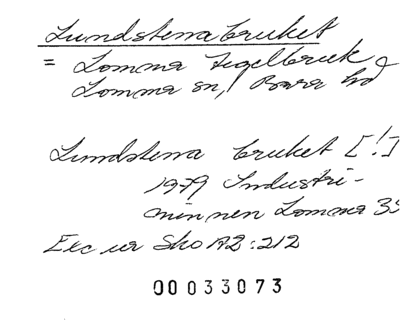 Lundstenna bruket
= Lomma Tegelbruk
Lomma sn, Bara hd
Lundstenna bruket [!]
1979 Industri-
minnen Lomma 35
Exc ur Sko A2:212
00033073